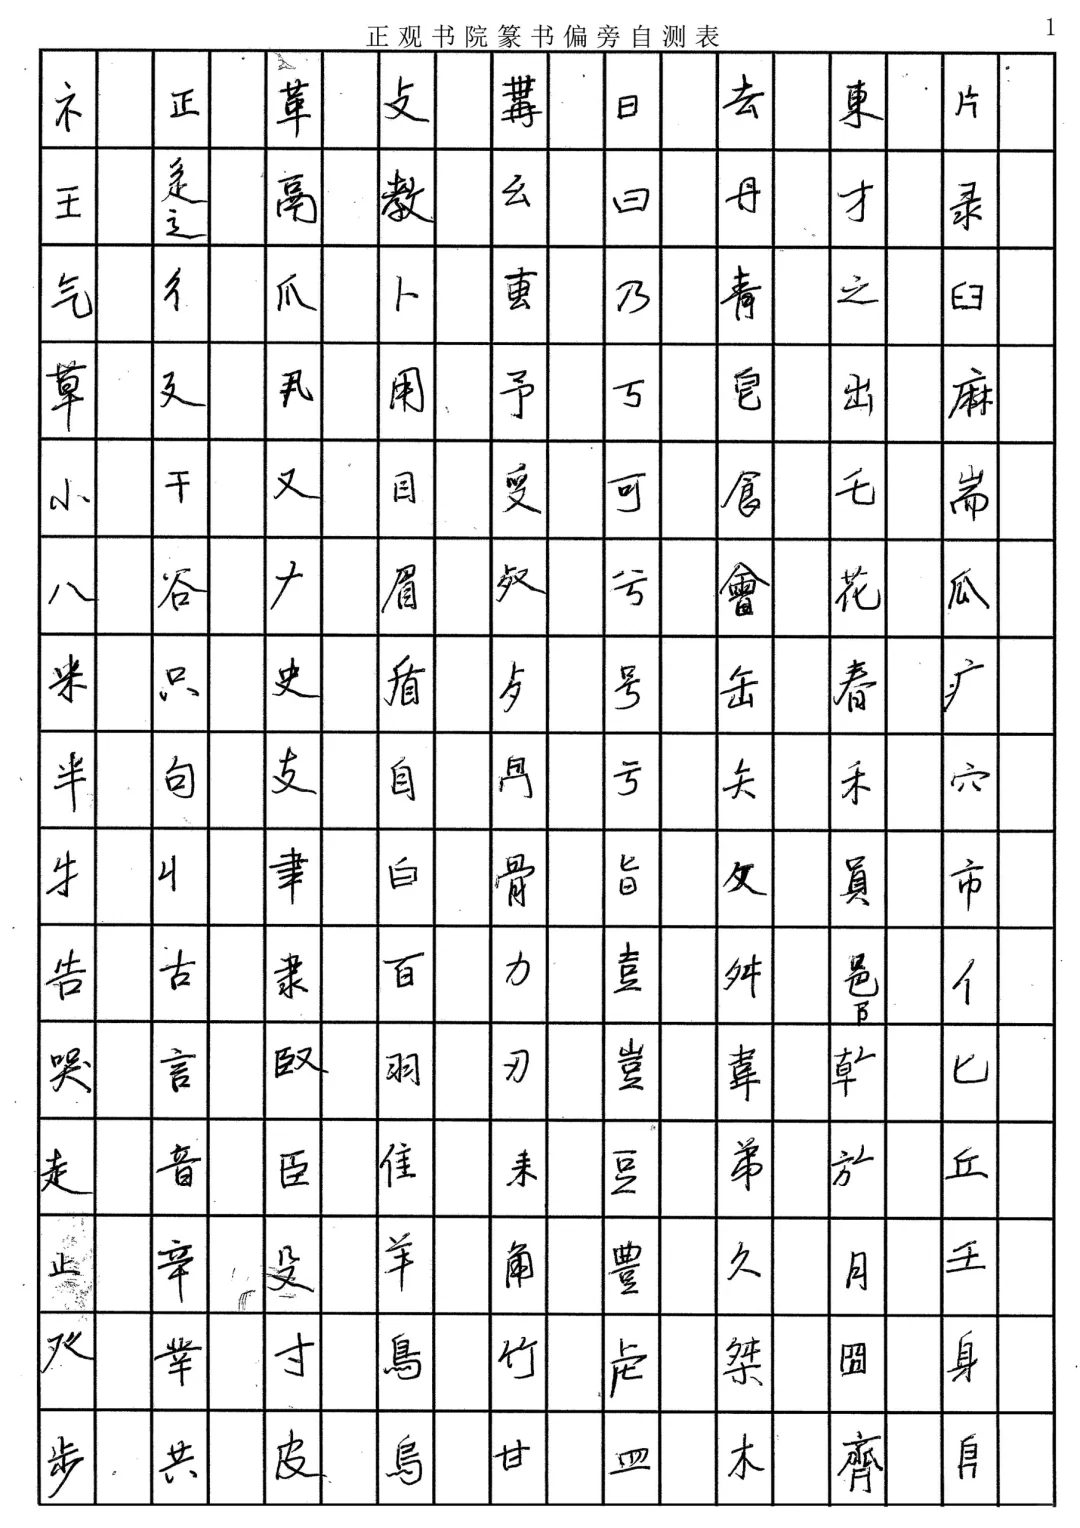 正观书院篆书偏旁自测表
1
礻 正 革 攴 冓 日 去 東 片
王 辵 辶 鬲 教 幺 曰 丹 才 录
气 彳 爪 卜 叀 乃 青 之 臼
草 廴 丮 用 予 丂 皀 出 麻
小 干 又 目 受 可 食 乇 耑
八 谷 𠂇 眉 㕡 兮 會 花 瓜
釆 只 史 盾 歺 号 缶 春 疒
半 句 支 自 冎 亏 矢 禾 穴
牛 丩 聿 白 骨 旨 夊 員 巿
告 古 隶 百 力 壴 舛 邑 阝 亻
哭 言 臤 羽 刃 豈 韋 倝 匕
走 音 臣 隹 耒 豆 弟 㫃 丘
止 辛 殳 羊 角 豊 久 月 𡈼
癶 丵 寸 鳥 竹 虍 桀 囧 身
步 共 皮 烏 甘 皿 木 齊 㐆